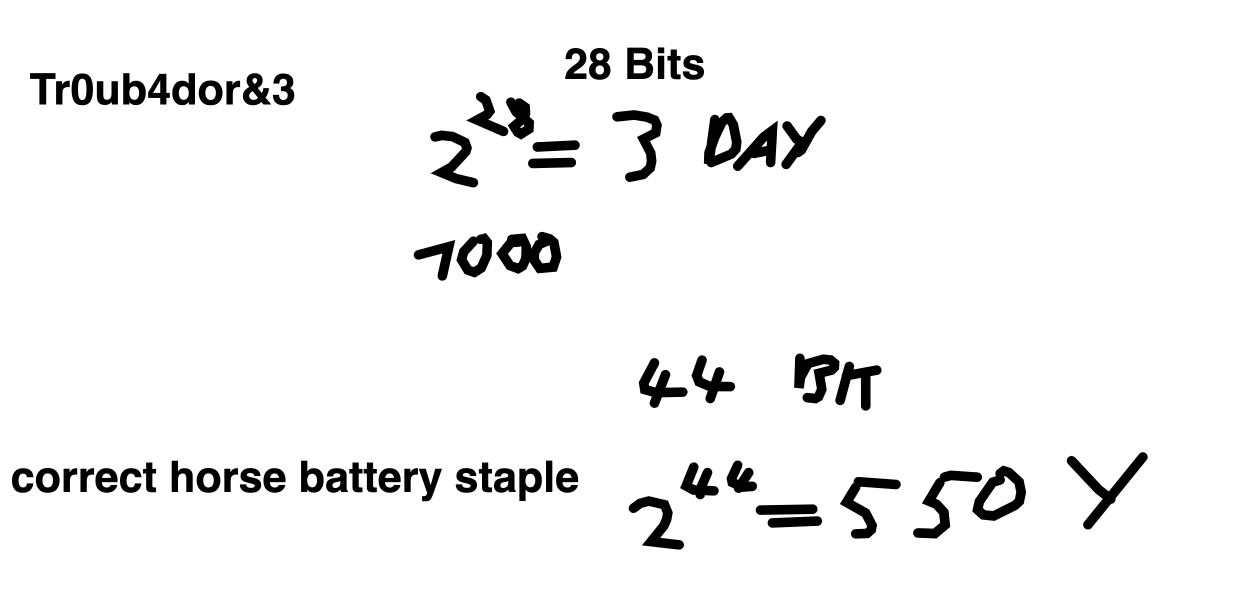 Tr0ub4dor&3
28 Bits
2^28 = 3 DAY
1000
44 BIT
correct horse battery staple
2^44 = 550 Y